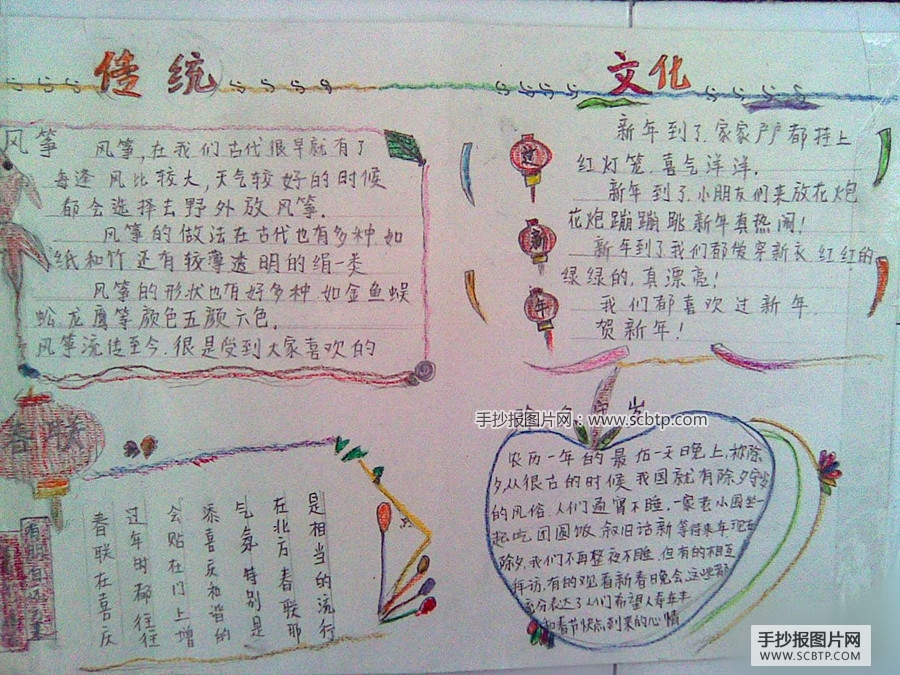 传统
文化
风筝
风筝,在我们古代很早就有了
每逢风比较大,天气较好的时候
都会选择去野外放风筝.
风筝的做法在古代也有多种.如
纸和竹还有较薄透明的绢一类
风筝的形状也有好多种.如金鱼蜈
蚣.龙鹰等颜色五颜六色.
风筝流传至今.很是受到大家喜欢的
过
新
年
新年到了家家户户都挂上
红灯笼.喜气洋洋.
新年到了小朋友们来放花炮
花炮蹦蹦跳新年真热闹!
新年到了我们都穿新衣红红的
绿绿的,真漂亮!
我们都喜欢过新年.
贺新年!
春联
春联在喜庆
过年时都往往
会贴在门上增
添喜庆和谐的
气氛特别是
在北方春联那
是相当的流行
岁
手抄报图片网:www.scbtp.com
农历一年的最后一天晚上,被除
夕从很古的时候我国就有除夕守岁
的风俗.人们通宵不睡.一家老小围坐一
起吃团圆饭.叙旧话新等待来年现在
除夕.我们不再整夜不睡.但有的相互
拜访.有的观看新春晚会这些都
充分表达了人们希望人寿年丰
和春节快点到来的心情
手抄报图片网
WWW.SCBTP.COM